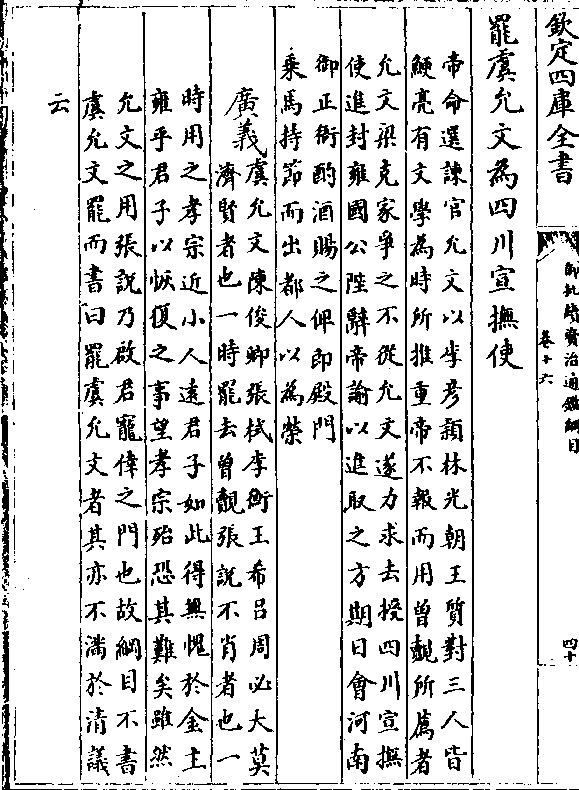 欽定四庫全書
御批續資治通鑑綱目
卷十六
四十
罷虞允文為四川宣撫使
帝命選諫官允文以李彦頴林光朝王質對三人皆
鯁亮有文學為時所推重帝不報而用曾覿所薦者
允文梁克家爭之不從允文遂力求去授四川宣撫
使進封雍國公陛辭帝諭以進取之方期日會河南
御正衙酌酒賜之俾即殿門
乘馬持節而出都人以為榮
廣義虞允文陳俊卿張栻李衡王希吕周必大莫
濟賢者也一時罷去曾覿張説不肖者也一
時用之孝宗近小人遠君子如此得無愧於金主
雍乎君子以恢復之事望孝宗殆恐其難矣雖然
允文之用張説乃啟君寵倖之門也故綱目不書
虞允文罷而書曰罷虞允文者其亦不滿於清議
云